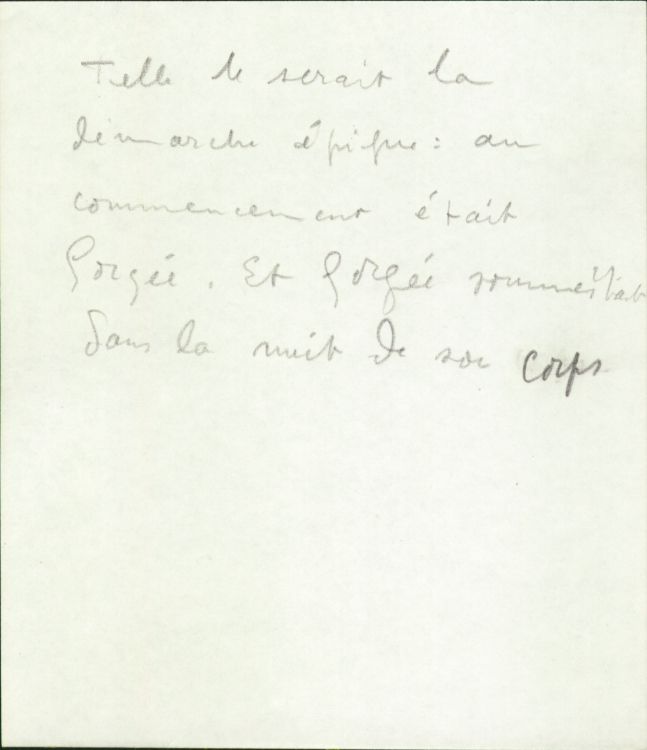 Telle serait la
démarche épique : au
commencement était
Gorgée. Et Gorgée sommeillait
dans la nuit de son corps